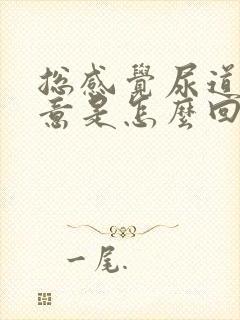 總感覺尿道
意是怎麼回
一尾.